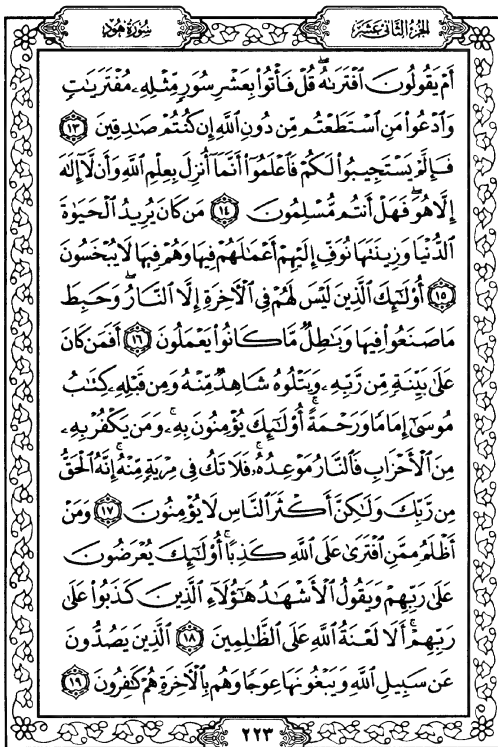 سُورَةُ هُودٍ
الجُزْءُ الثَّانِي عَشَرَ
أَمْ يَقُولُونَ ٱفْتَرَىٰهُۖ قُلْ فَأْتُوا۟ بِعَشْرِ سُوَرٍ مِّثْلِهِۦ مُفْتَرَيَٰتٍ
وَٱدْعُوا۟ مَنِ ٱسْتَطَعْتُم مِّن دُونِ ٱللَّهِ إِن كُنتُمْ صَٰدِقِينَ ﴿١٣﴾
فَإِلَّمْ يَسْتَجِيبُوا۟ لَكُمْ فَٱعْلَمُوٓا۟ أَنَّمَآ أُنزِلَ بِعِلْمِ ٱللَّهِ وَأَن لَّآ إِلَٰهَ
إِلَّا هُوَۖ فَهَلْ أَنتُم مُّسْلِمُونَ ﴿١٤﴾ مَن كَانَ يُرِيدُ ٱلْحَيَوٰةَ
ٱلدُّنْيَا وَزِينَتَهَا نُوَفِّ إِلَيْهِمْ أَعْمَٰلَهُمْ فِيهَا وَهُمْ فِيهَا لَا يُبْخَسُونَ
﴿١٥﴾ أُو۟لَٰٓئِكَ ٱلَّذِينَ لَيْسَ لَهُمْ فِى ٱلْءَاخِرَةِ إِلَّا ٱلنَّارُۖ وَحَبِطَ
مَا صَنَعُوا۟ فِيهَا وَبَٰطِلٌ مَّا كَانُوا۟ يَعْمَلُونَ ﴿١٦﴾ أَفَمَن كَانَ
عَلَىٰ بَيِّنَةٍ مِّن رَّبِّهِۦ وَيَتْلُوهُ شَاهِدٌ مِّنْهُ وَمِن قَبْلِهِۦ كِتَٰبُ
مُوسَىٰٓ إِمَامًا وَرَحْمَةًۚ أُو۟لَٰٓئِكَ يُؤْمِنُونَ بِهِۦۚ وَمَن يَكْفُرْ بِهِۦ
مِنَ ٱلْأَحْزَابِ فَٱلنَّارُ مَوْعِدُهُۥۚ فَلَا تَكُ فِى مِرْيَةٍ مِّنْهُۚ إِنَّهُ ٱلْحَقُّ
مِن رَّبِّكَ وَلَٰكِنَّ أَكْثَرَ ٱلنَّاسِ لَا يُؤْمِنُونَ ﴿١٧﴾ وَمَنْ
أَظْلَمُ مِمَّنِ ٱفْتَرَىٰ عَلَى ٱللَّهِ كَذِبًاۚ أُو۟لَٰٓئِكَ يُعْرَضُونَ
عَلَىٰ رَبِّهِمْ وَيَقُولُ ٱلْأَشْهَٰدُ هَٰٓؤُلَآءِ ٱلَّذِينَ كَذَبُوا۟ عَلَىٰ
رَبِّهِمْۚ أَلَا لَعْنَةُ ٱللَّهِ عَلَى ٱلظَّٰلِمِينَ ﴿١٨﴾ ٱلَّذِينَ يَصُدُّونَ
عَن سَبِيلِ ٱللَّهِ وَيَبْغُونَهَا عِوَجًا وَهُم بِٱلْءَاخِرَةِ هُمْ كَٰفِرُونَ ﴿١٩﴾
٢٢٣